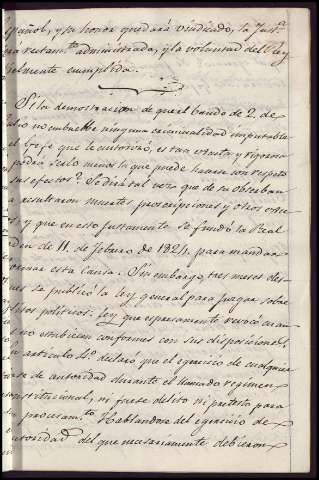 español, y su honor quedará vindicado, la Just.ª
rectam.te administrada, y la voluntad del Rey
fielmente cumplida.
Si la demostracion de que el bando de 2. de
Julio no embuelbe ninguna criminalidad imputable
al Gefe que le autorizó, es tan exacta y rigorosa
podrá serlo menos la que puede hacerse con respecto
sus efectos? Se dirá tal vez que de su observan
resultaron muertes, proscripciones y otros
y que en eso justamente se fundó la Real
orden de 11. de Febrero de 1824. para mandar
formar esta Causa. Sin embargo, tres meses des
se publicó la ley general para juzgar sobre
delitos politicos. Ley que espresamente revocó
no estubiesen conformes con sus disposiciones,
articulo 4º declaró que el egercicio de cualquiera
de autoridad durante el llamado regimen
constitucional, ni fuese delito ni pretesto para
procesam.to Hablandose del egercicio de
autoridad del que necesariamente debieron